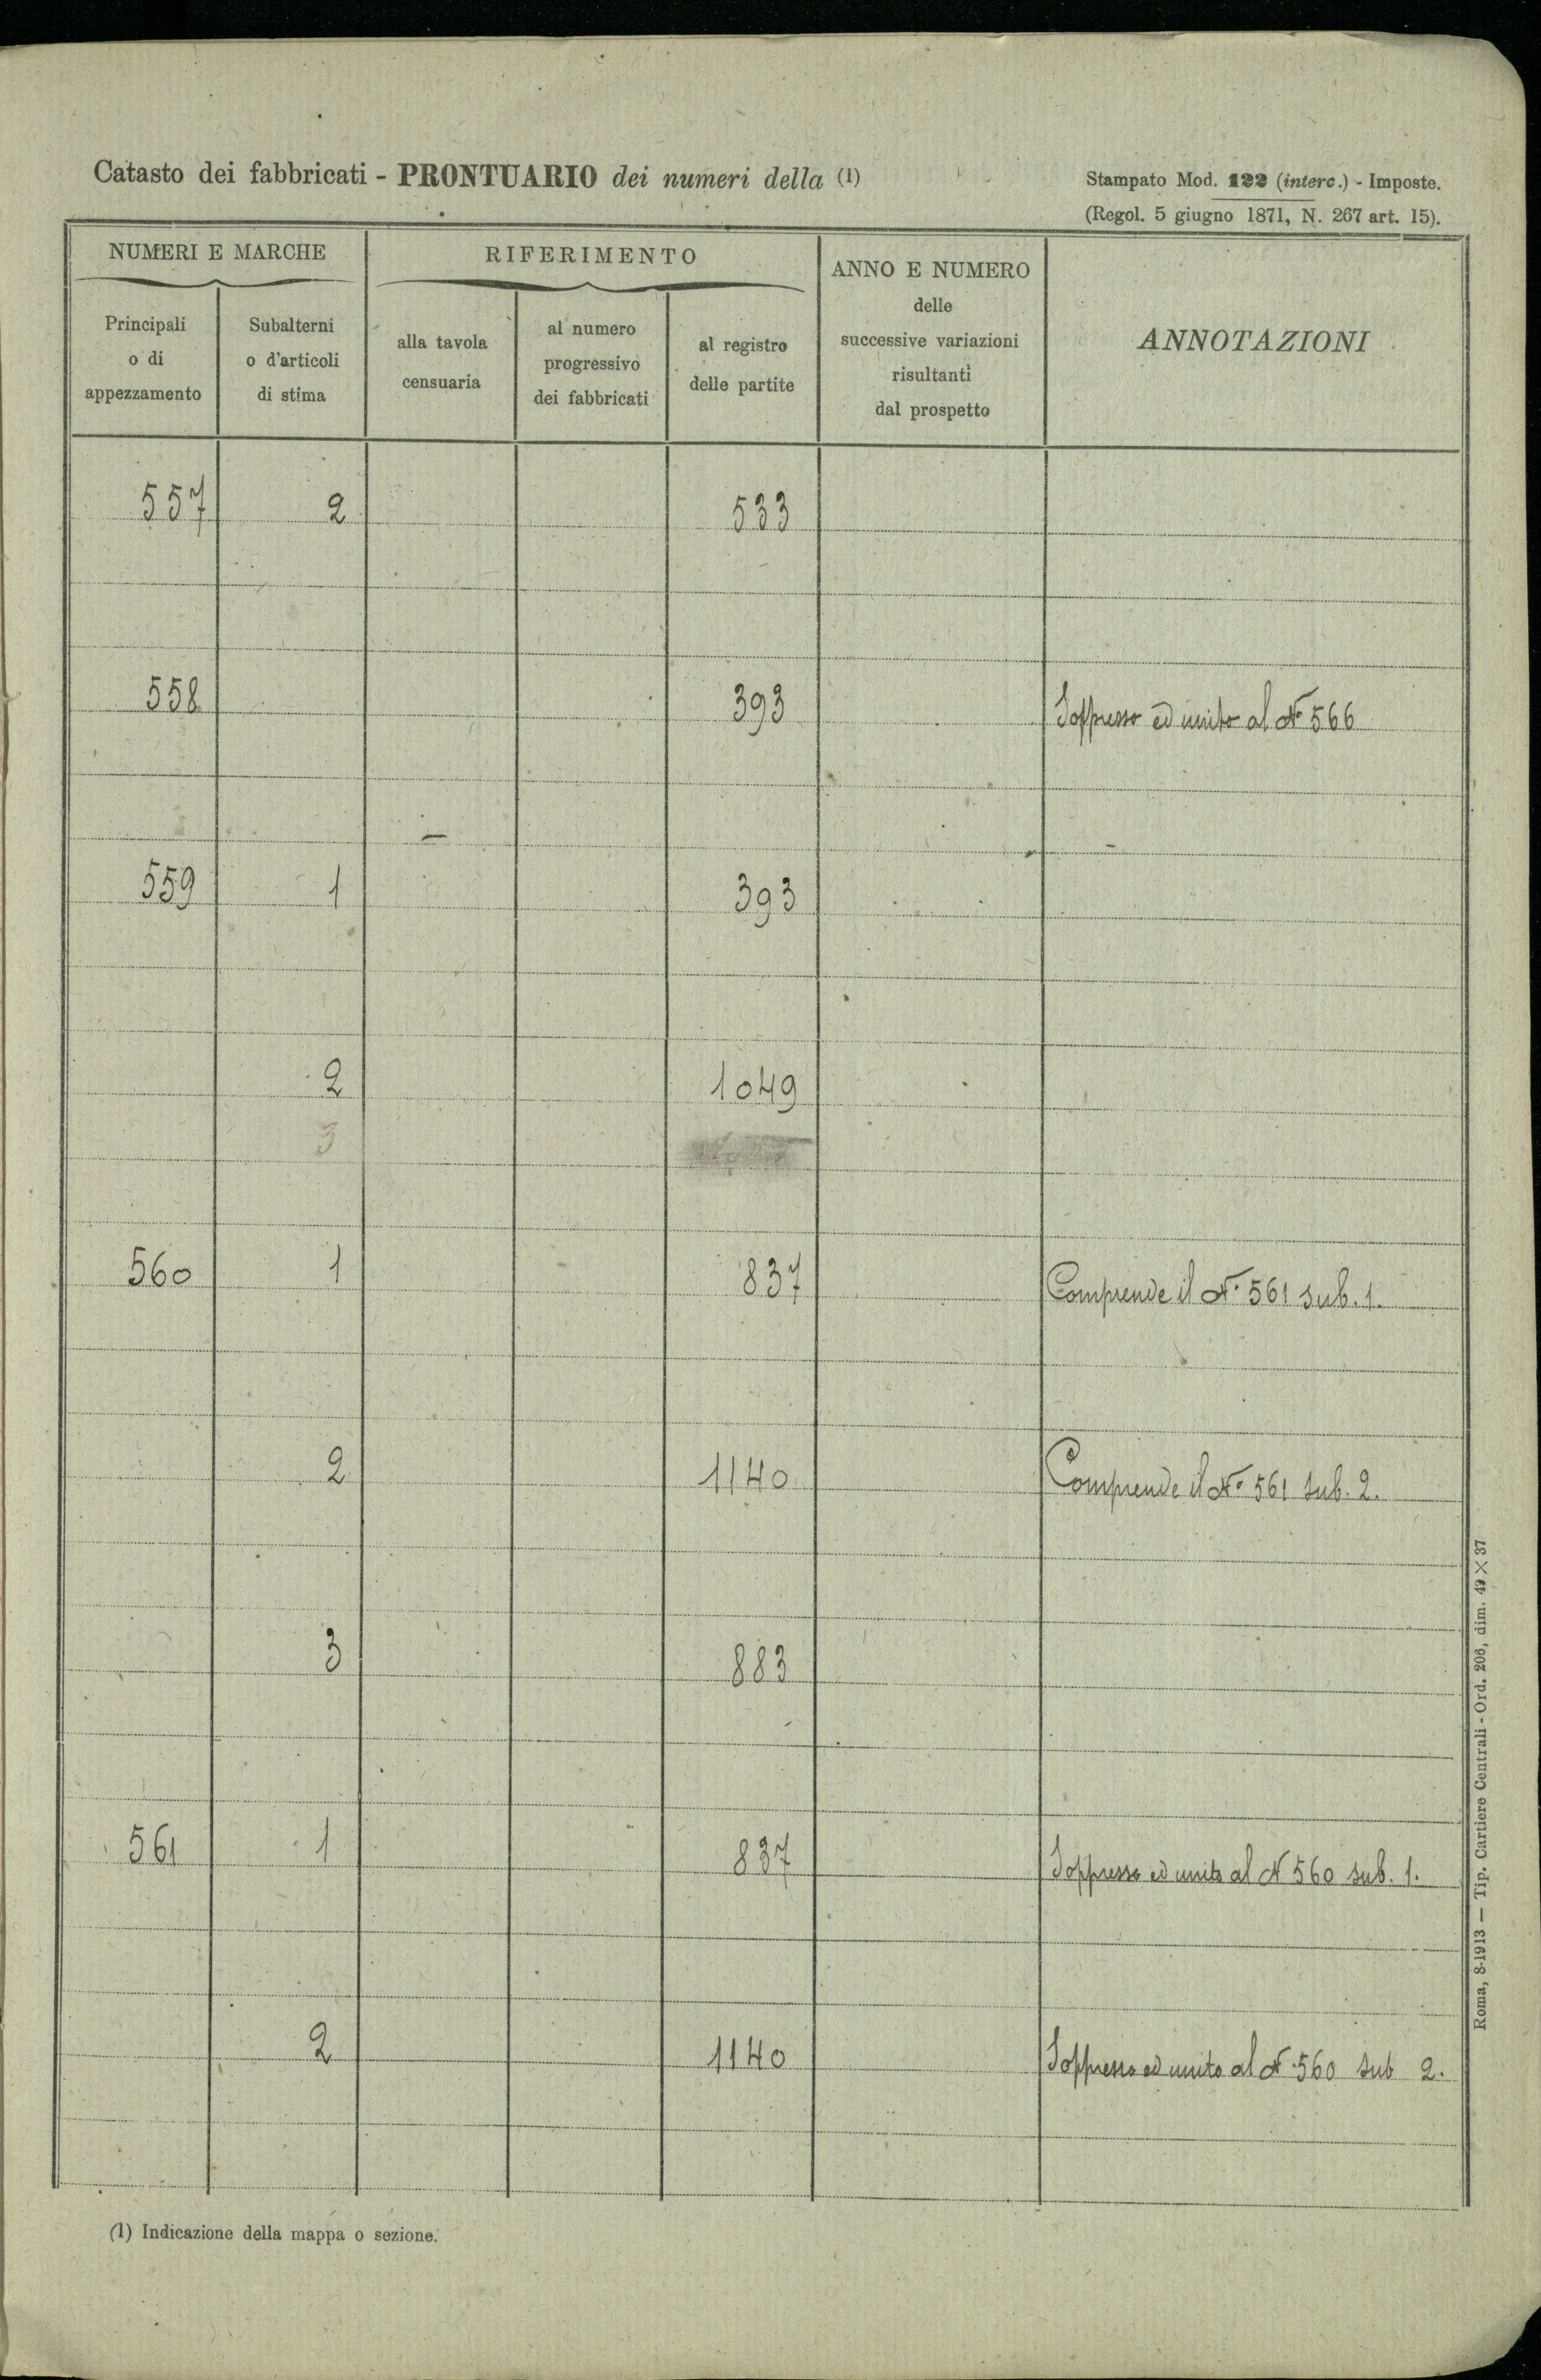 Catasto dei fabbricati - PRONTUARIO dei numeri della (1)
Stampato Mod. 122 (interc.) - Imposte.
(Regol. 5 giugno 1871, N. 267 art. 15).
NUMERI E MARCHE
RIFERIMENTO
ANNO E NUMERO
delle
successive variazioni
risultanti
dal prospetto
ANNOTAZIONI
Principali
o di
appezzamento
Subalterni
o d'articoli
di stima
alla tavola
censuaria
al numero
progressivo
dei fabbricati
al registro
delle partite
557 2 533
558 393 Soppresso ed unito al N° 566
559 1 393
2 1049
3
560 1 837 Comprende il N° 561 sub. 1.
2 1140 Comprende il N° 561 sub. 2.
3 883
561 1 837 Soppresso ed unito al N 560 sub. 1.
2 1140 Soppresso ed unito al N 560 sub 2.
(1) Indicazione della mappa o sezione.
Roma, 8-1913 — Tip. Cartiere Centrali - Ord. 206, dim. 49 × 37